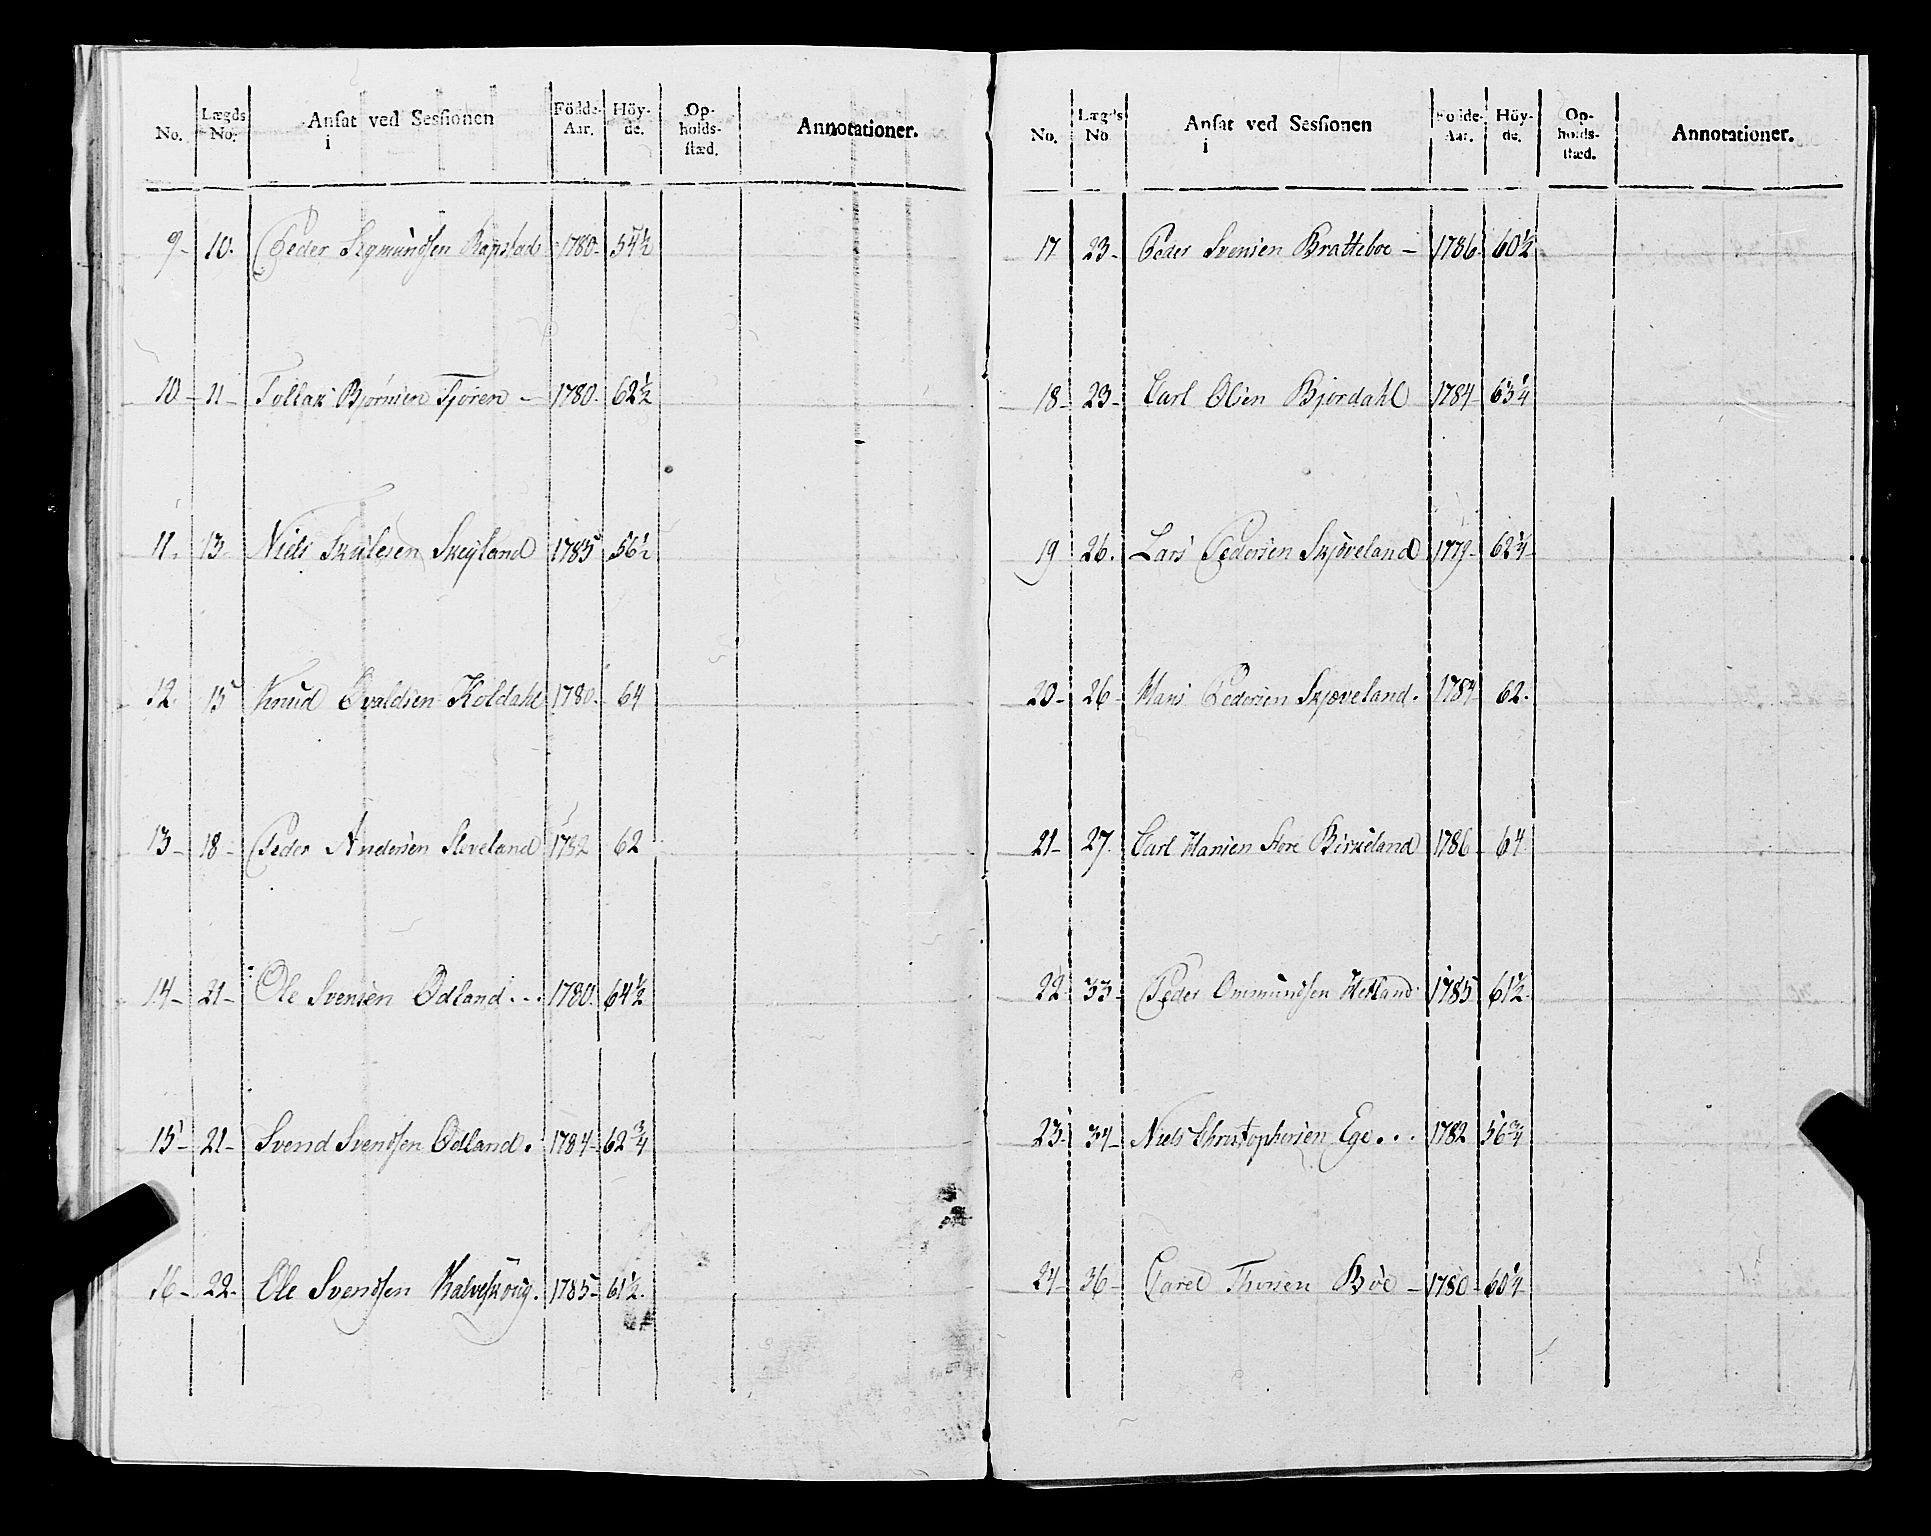 No. Lægds No. Ansat ved Sessionen i Födde-Aar. Höy-de. Op-holds-stæd. Annotationer.
9- 10. Peder Sigmundsen Rapstad 1780. 54½
10- 11- Tollak Björnsen Tjören - 1780. 62½
11. 13. Niels Skulesen Skeyland 1785 56½
12. 15 Knud Osvaldsen Koldahl 1780. 64
13- 18- Peder Andersen Sleveland 1782 62
14- 21- Ole Svensen Ödland... 1780. 64½
15- 21- Svend Svendsen Ödland. 1784- 62¾
16- 22. Ole Svendsen Kalveskoug. 1785- 61½.
No. Lægds No Ansat ved Sessionen i Födde-Aar. Höy-de. Op-holds-stæd. Annotationer.
17 23- Peder Svensen Bratteboe - 1786. 60½
18- 23- Carl Olsen Bjordahl 1784 63¼
19 26. Lars Pedersen Skjöveland 1779- 62¼
20- 26- Hans Pedersen Skjæveland. 1784 62.
21- 27. Carl Hansen Store Birkeland 1786 64
22 33- Peder Ommundsen Hetland 1785 61½.
23- 34- Niels Christophersen Ege... 1782 56¾
24- 36- Carel Thorsen Böe - 1780- 60¼